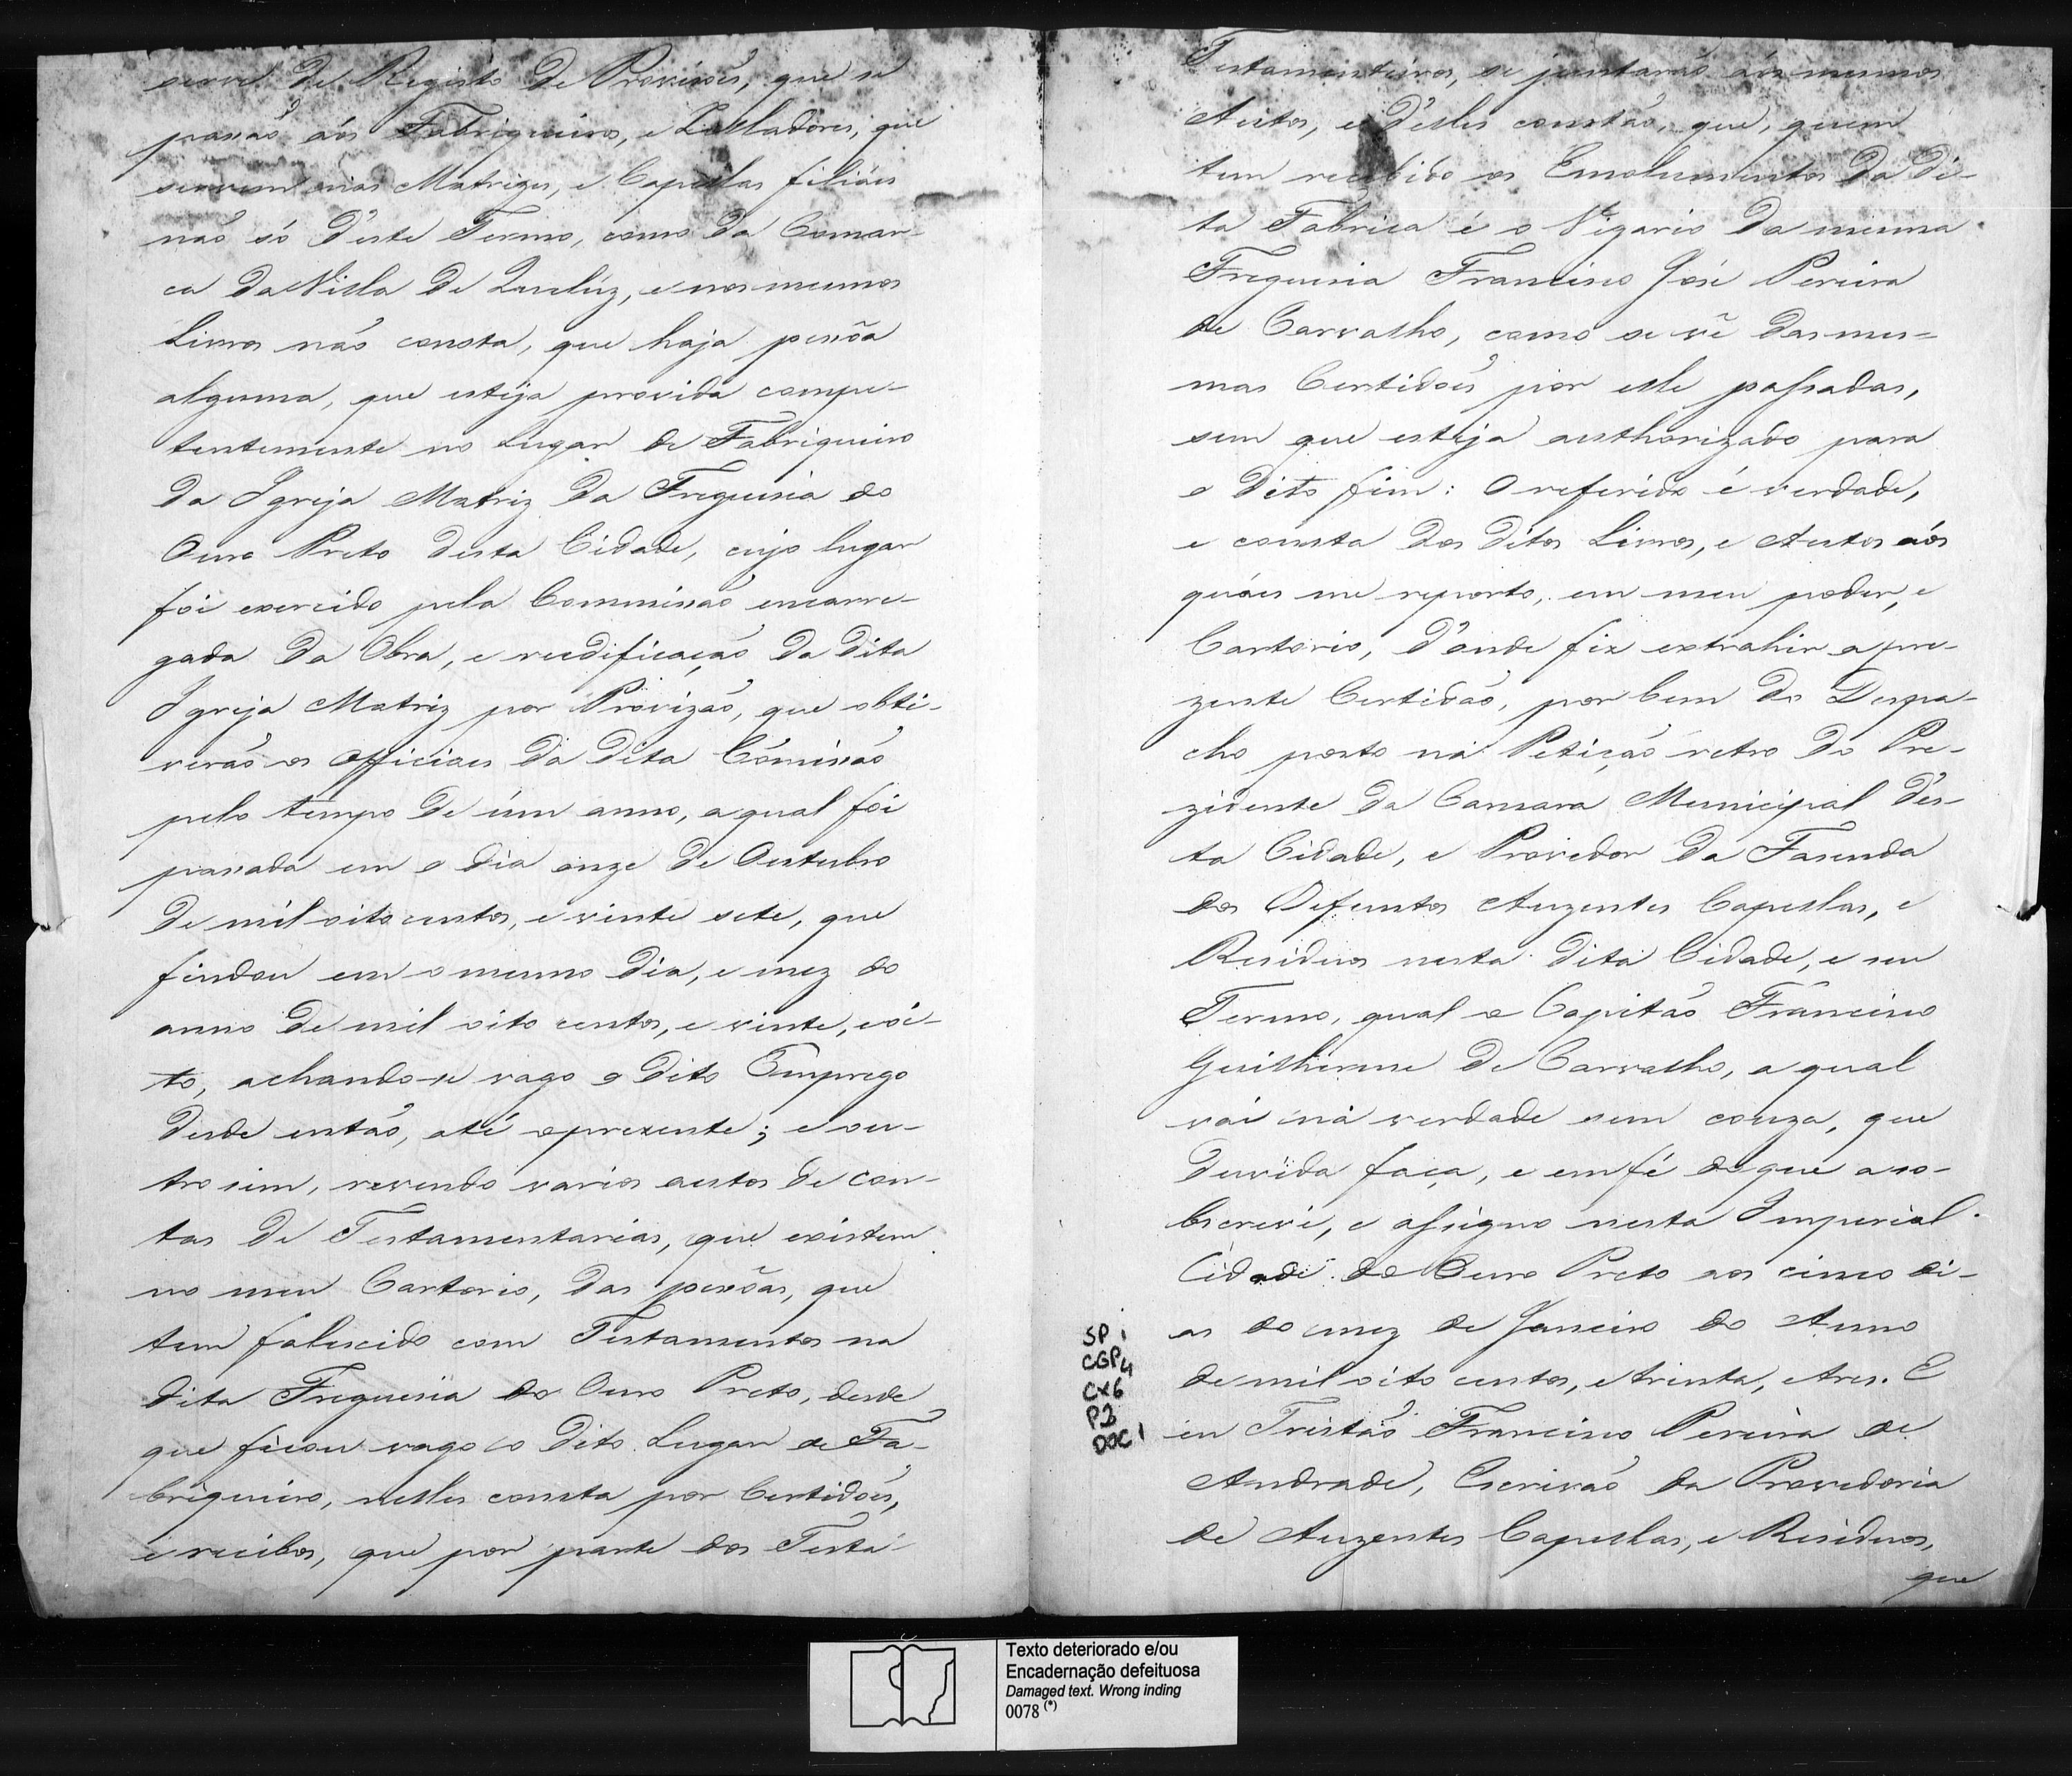 serve de Registo de Provisões, que se
passaõ aós Fabriqueiros, e Zelladores, que
servem nas Matrizes, e Capellas filiáes
naõ só d'este Termo, como da Comar-
ca da Villa de Queluz, e nos mesmos
Livros naõ consta, que haja pessôa
alguma, que esteja provida compe-
tentemente no Lugar de Fabriqueiro
da Igreja Matriz da Freguesia do
Ouro Preto desta Cidade, cujo lugar
foi exercido pela Commissaõ encarre-
gada da Obra, e reedificaçaõ da dita
Igreja Matriz por Provizaõ, que obti-
veraõ os Officiaes da dita Cõmissaõ
pelo tempo de úm anno, a qual foi
passada em o dia onze de Outubro
de mil oito centos, e vinte sete, que
findou em o mesmo dia, e mez do
anno de mil oito centos, e vinte, e oi-
to, achando-se vago o dito Emprego
desde entaõ, até o prezente; e ou-
tro sim, revendo varios autos de con-
tas de Testamentarias, que existem
no meu Cartorio, das pessôas, que
tem falescido com Testamentos na
dita Freguesia do Ouro Preto, desde
que ficou vago o dito Lugar de Fa-
briqueiro, nelles consta por Certidoẽs,
e recibos, que por parte dos Testa-
Testamenteiros, se juntaraõ aós mesmos
Autos, e d'elles constaõ, que, quem
tem recebido os Emolumentos da di-
ta Fabrica é o Vigario da mesma
Freguesia Francisco José Pereira
de Carvalho, como se vê das mes-
mas Certidoẽs por elle passadas,
sem que esteja authorizado para
o dito fim: O referido é verdade,
e consta dos ditos Livros, e Autos aós
quáes me reporto, em meu poder, e
Cartorio, d'onde fiz extrahir a pre-
zente Certidaõ, por bem do Despa-
cho posto na Petiçaõ retro do Pre-
zidente da Camara Municipal d'es-
ta Cidade, e Provedor da Fasenda
dos Defuntos Auzentes Capellas, e
Residuos nesta dita Cidade, e seu
Termo, qual o Capitaõ Francisco
Guilherme de Carvalho, a qual
vái na verdade sem couza, que
duvida faça, e em fé do que a so-
bscrevi, e assigno nesta Imperial
Cidade do Ouro Preto aos cinco di-
as do mez de Janeiro do Anno
de mil oito centos, e trinta, e tres. E
eu Tristaõ Francisco Pereira de
Andrade, Escrivaõ da Provedoria
de Auzentes Capellas, e Residuos,
que
SP
CGP4
CX6
P2
DOC1
Texto deteriorado e/ou
Encadernação defeituosa
Damaged text. Wrong inding
0078 (*)